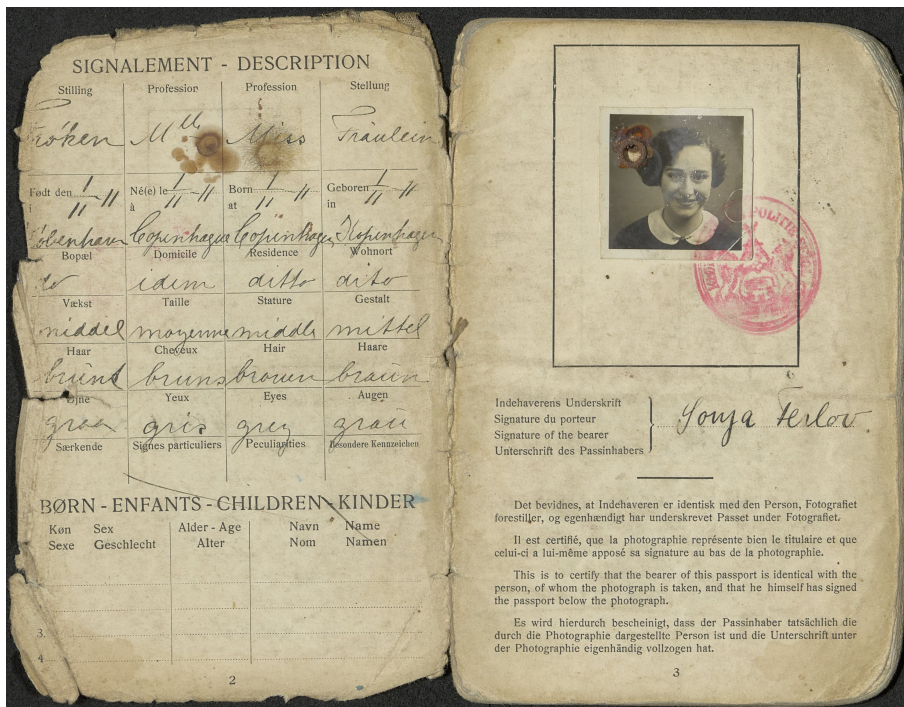 SIGNALEMENT - DESCRIPTION
Stilling Profession Profession Stellung
Frøken Mlle Miss Fräulein
Født den 1/11 11 Né(e) le 1/11 11 Born 1/11 11 Geboren 1/11 11
i à at in
København Copenhague Copenhagen Kopenhagen
Bopæl Domicile Residence Wohnort
do idem ditto dito
Vækst Taille Stature Gestalt
middel moyenne middle mittel
Haar Cheveux Hair Haare
brunt bruns brown braun
Øjne Yeux Eyes Augen
graa gris grey grau
Særkende Signes particuliers Peculiarities Besondere Kennzeichen
BØRN - ENFANTS - CHILDREN - KINDER
Køn Sex Alder - Age Navn Name
Sexe Geschlecht Alter Nom Namen
3.
4.
2
POLITI
Indehaverens Underskrift
Signature du porteur
Signature of the bearer
Unterschrift des Passinhabers
Sonja Ferlov
Det bevidnes, at Indehaveren er identisk med den Person, Fotografiet
forestiller, og egenhændigt har underskrevet Passet under Fotografiet.
Il est certifié, que la photographie représente bien le titulaire et que
celui-ci a lui-même apposé sa signature au bas de la photographie.
This is to certify that the bearer of this passport is identical with the
person, of whom the photograph is taken, and that he himself has signed
the passport below the photograph.
Es wird hierdurch bescheinigt, dass der Passinhaber tatsächlich die
durch die Photographie dargestellte Person ist und die Unterschrift unter
der Photographie eigenhändig vollzogen hat.
3